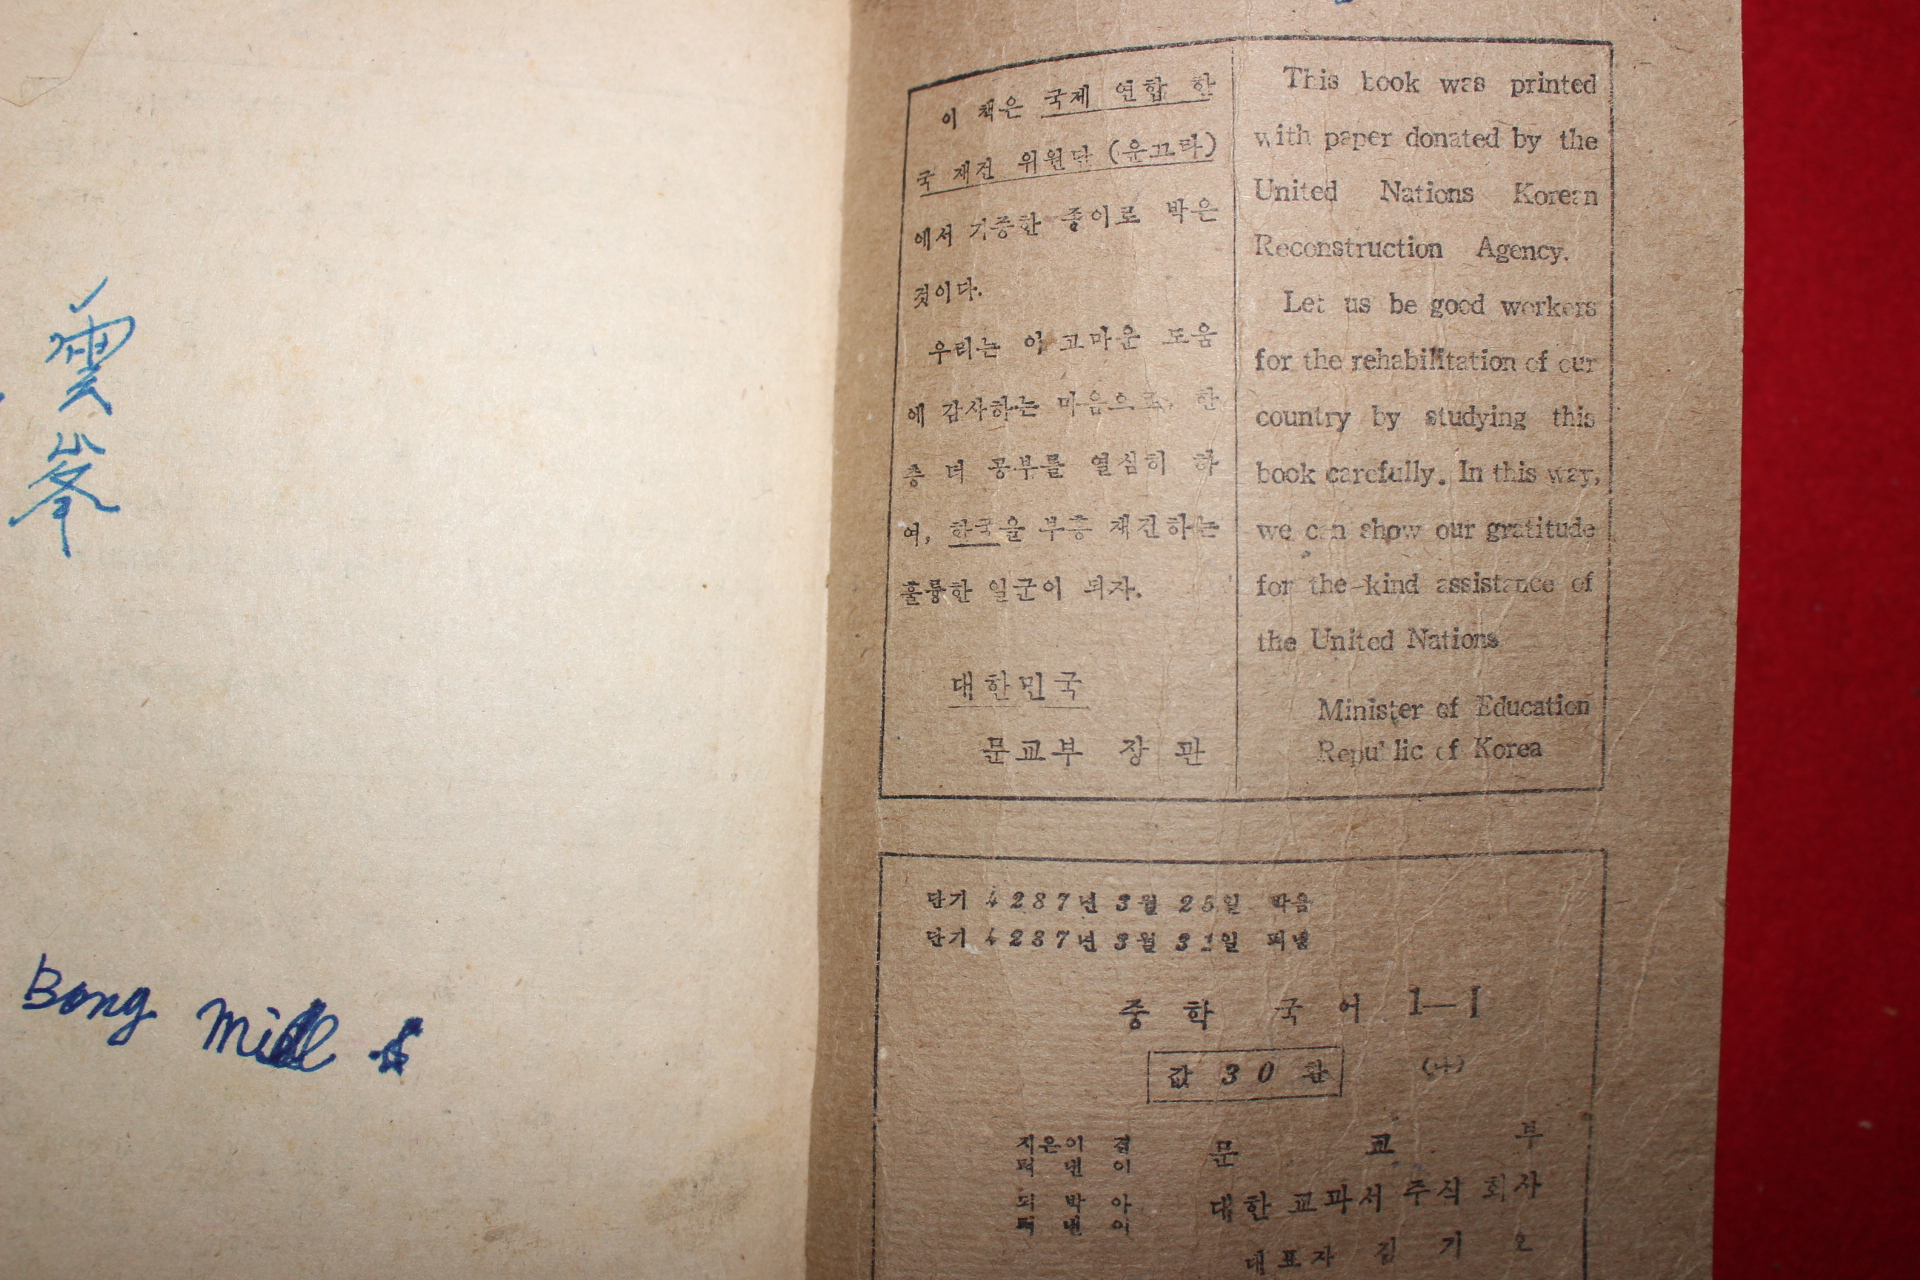 雲
峯
Bong
이 책은 국제 연합 한
국 재건 위원단 (운끄라)
에서 기증한 종이로 박은
것이다.
우리는 이 고마운 도움
에 감사하는 마음으로, 한
층 더 공부를 열심히 하
여, 한국을 부흥 재건하는
훌륭한 일군이 되자.
대한민국
문교부 장관
This book was printed
with paper donated by the
United Nations Korean
Reconstruction Agency.
Let us be good workers
for the rehabilitation of our
country by studying this
book carefully. In this way,
we can show our gratitude
for the kind assistance of
the United Nations
Minister of Education
Republic of Korea
단기 4287년 3월 25일 박음
단기 4287년 3월 31일 펴냄
중학 국어 1—I
값 30환
(나)
지은이 겸
펴낸이
문교부
되박아
펴낸이
대한 교과서 주식 회사
대표자 김기오